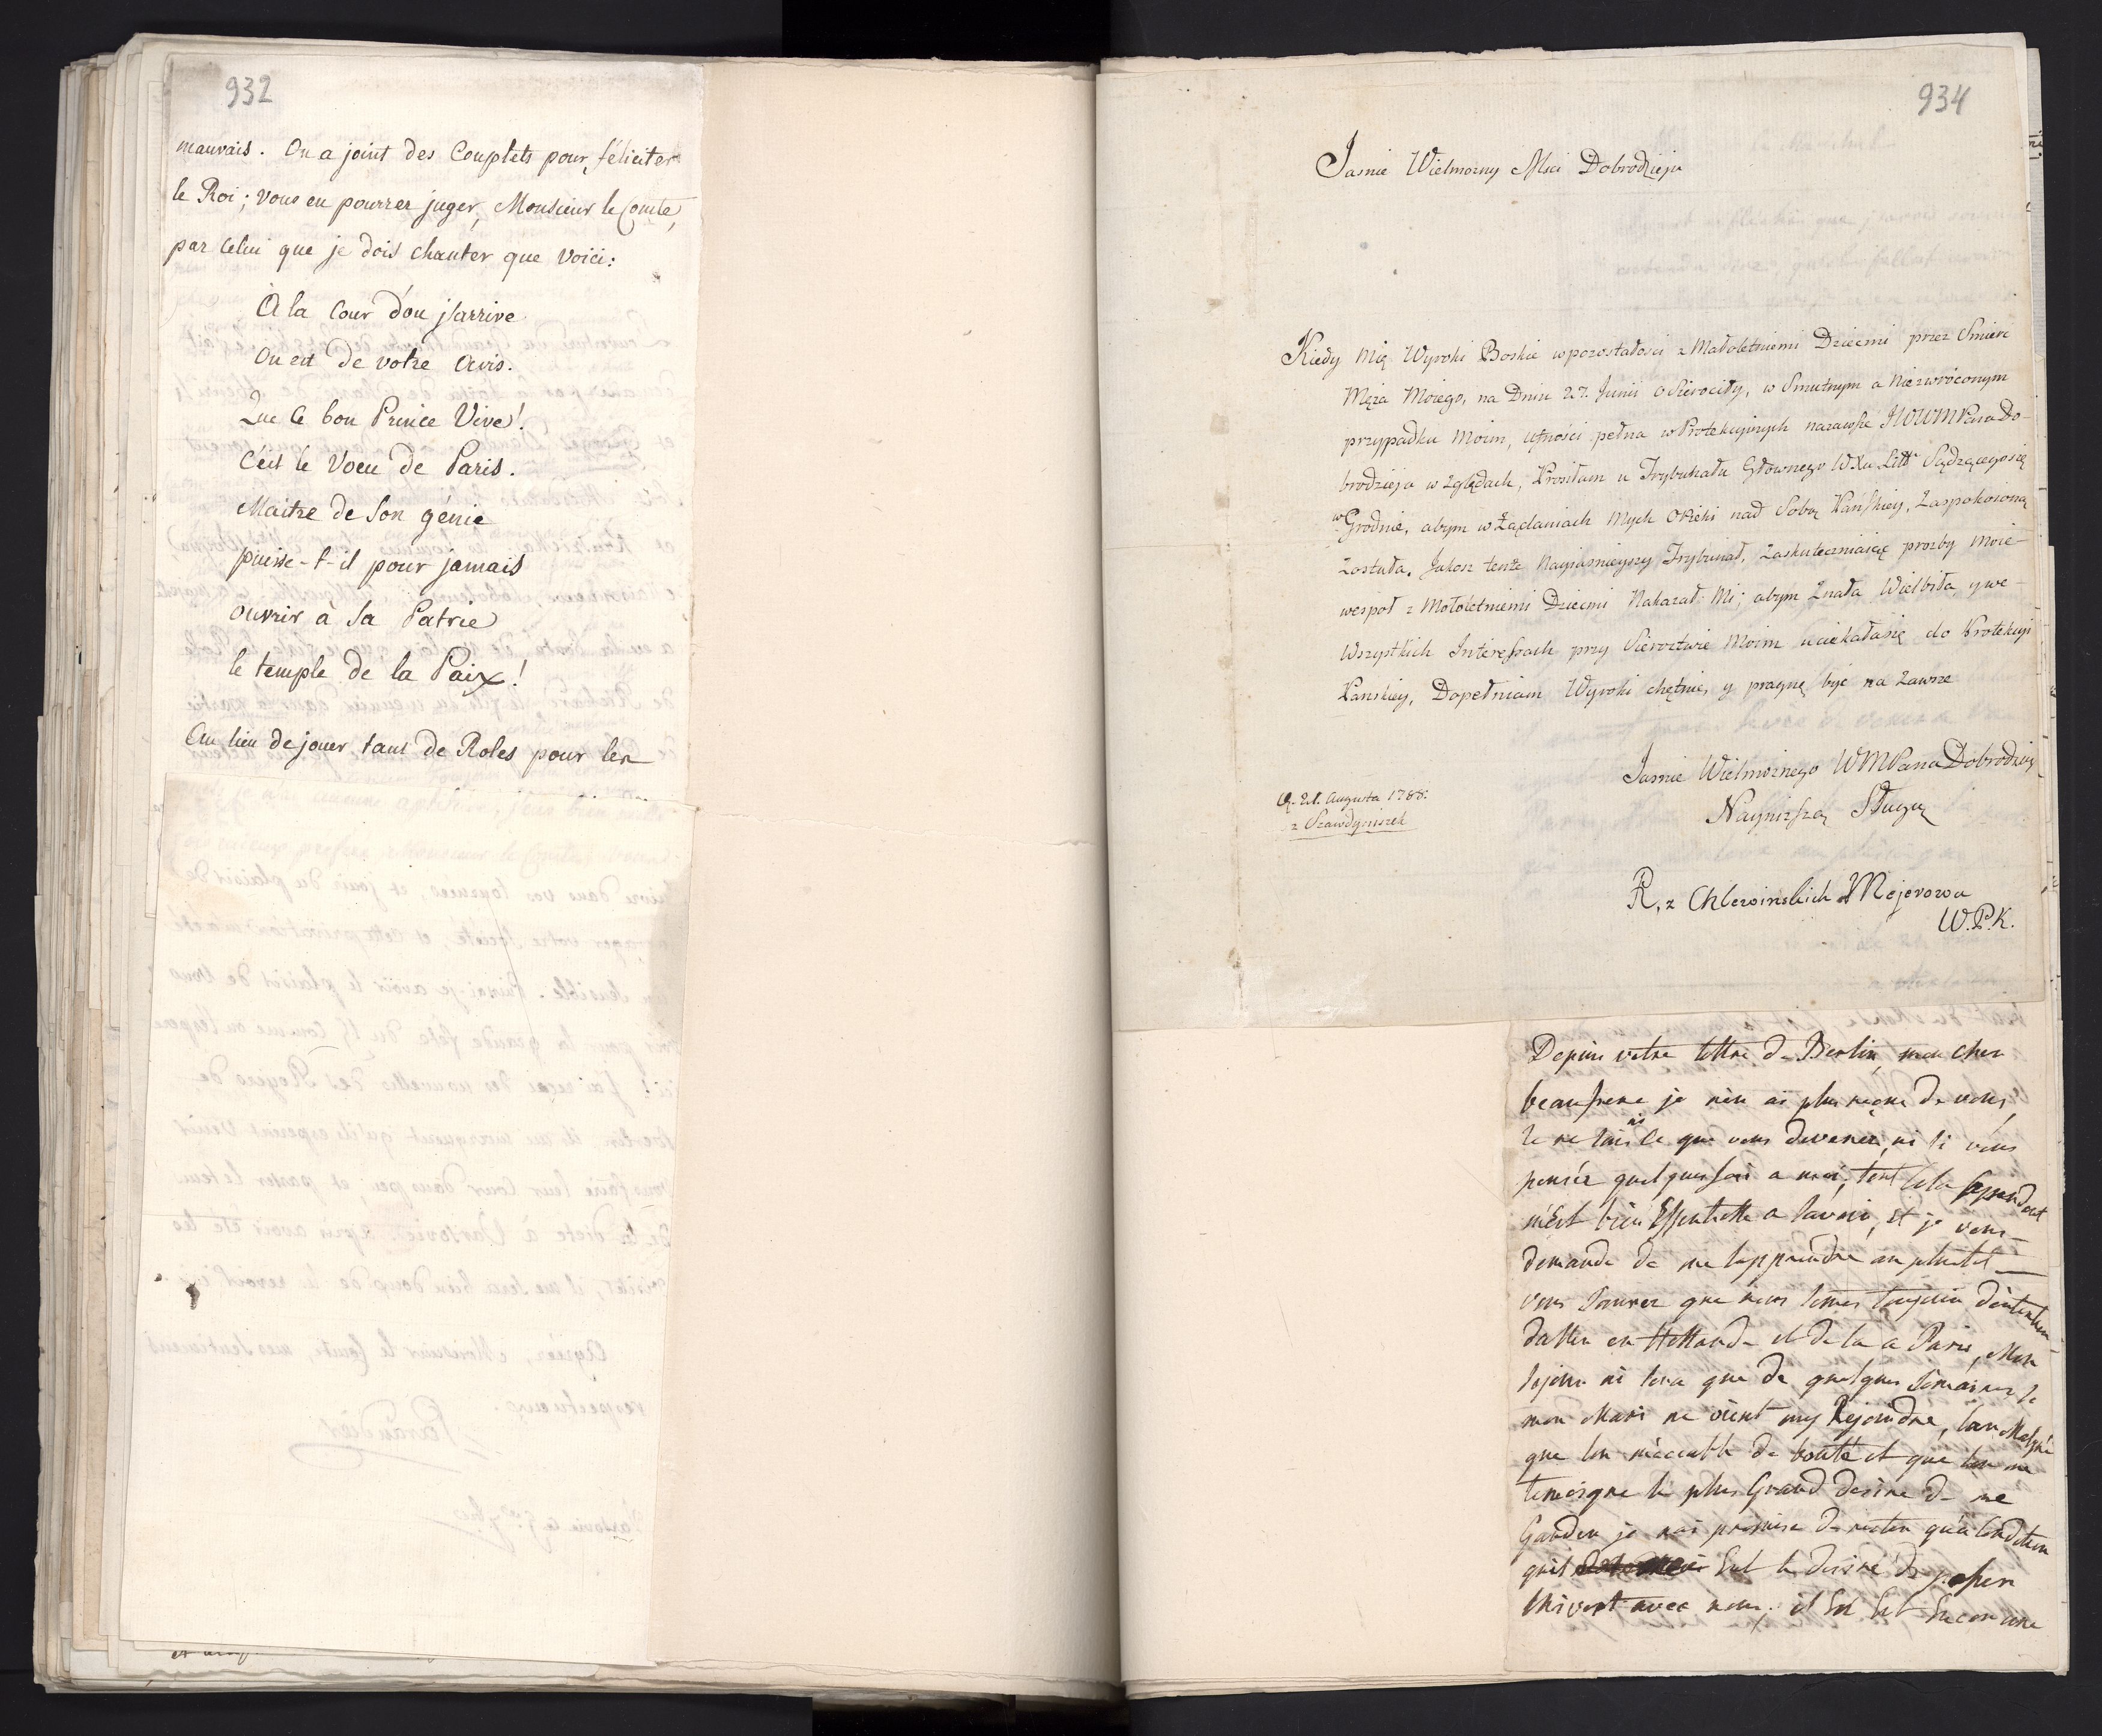 932
mauvais. On a joint des Couplets pour féliciter
le Roi; vous en pourrez juger, Monsieur le Comte,
par celui que je dois chanter que voici:
A la Cour d'ou j'arrive
On est de votre avis.
Que ce bon Prince Vive!
c'est le Voeu de Paris.
Maitre de son génie
puisse-t-il pour jamais
ouvrir à sa Patrie
le temple de la Paix!
Au lieu de jouer tant de Roles pour les
934
Jasnie Wielmożny Msci Dobrodzieju
Kiedy Mię Wyroki Boskie w pozostałosci z Małoletniemi Dziećmi przez Smierc
Męża Moiego, na Dniu 27. Junii Osierociły, w Smutnym a Niezwróconym
przypadku Moim, ufności pełna w Protekcyinych nazawsze JWWMPana Do-
brodzieja względach, Prosiłam u Trybunału Głownego WXu Litt. Sądzącego się
w Grodnie, abym w Żądaniach Mych Opieki nad Sobą Pańskiey, Zaspokoioną
Zostuła. Jakosz tenże Nayiasnieyszy Trybunał, Zaskuteczniaiąc prozby Moie
wespoł z Małoletniemi Dziecmi Nakazał Mi; abym Znała Wielbiła, y we
Wszystkich Interessach przy Sieroztwie Moim uciekałasię do Protekcyi
Panskiey, Dopełniam Wyroki chętnie, y pragnę być na Zawsze
Jasnie Wielmożnego WMPana Dobrodzieja
Nayniższą Sługą
21. Augusta 1788:
z Szawdyniszek
R. z Chlewinskich Mejerowa
W.P.K.
Depuis votre lettre de Berlin, mon cher
beaufrere je n'en ai plus reçue de vous,
Je ne sais ni ce que vous devenez, ni si vous
pensée quelques fois a moi, tout cela sependent
m'est bien Essentielle a savoir, et je vous
demande de me l'apprendre au plustot
vous saurez que nous somes toujour d'intention
daller en Hollande et de la a Paris, Mon
sejour ni sera que de quelques semaines si
mon Mari ne vient my Rejoindre, car Malgré
que lon m'accable de bonté et que lon me
temoigne le plus Grand desire de me
Garder je nai promise de rester qu'a Condition
quil Eut le desire de passer
lhivert avec nous; il En Est Encor une